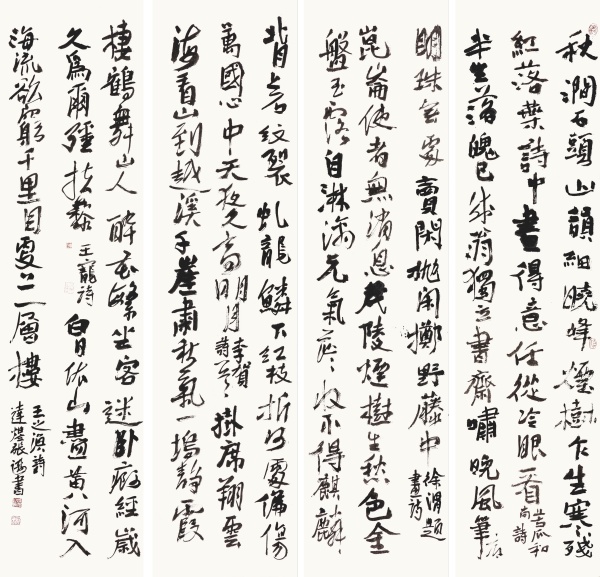 秋澗石頭山韻細曉峰煙樹乍生寒殘
紅落葉詩中畫得意任從冷眼看
苦瓜和
尚詩
半生落魄已成翁獨立書齋嘯晚風筆底
明珠無處賣閑拋閑擲野藤中
徐渭題
畫詩
崑崙使者無消息茂陵煙樹生愁色金
盤玉露自淋漓元氣茫茫收不得麒麟
背上石紋裂虬龍鱗下紅枝折何處偏傷
萬國心中天夜久高明月
李賀
掛席翔雲
海看山到越溪千崖肅秋氣一塢靜霞
棲鶴舞山人醉坐客迷卧癡經歲
久為爾扶藜
王寵詩
白日依山盡黃河入
海流欲窮千里目更上一層樓
王之渙詩
張海書